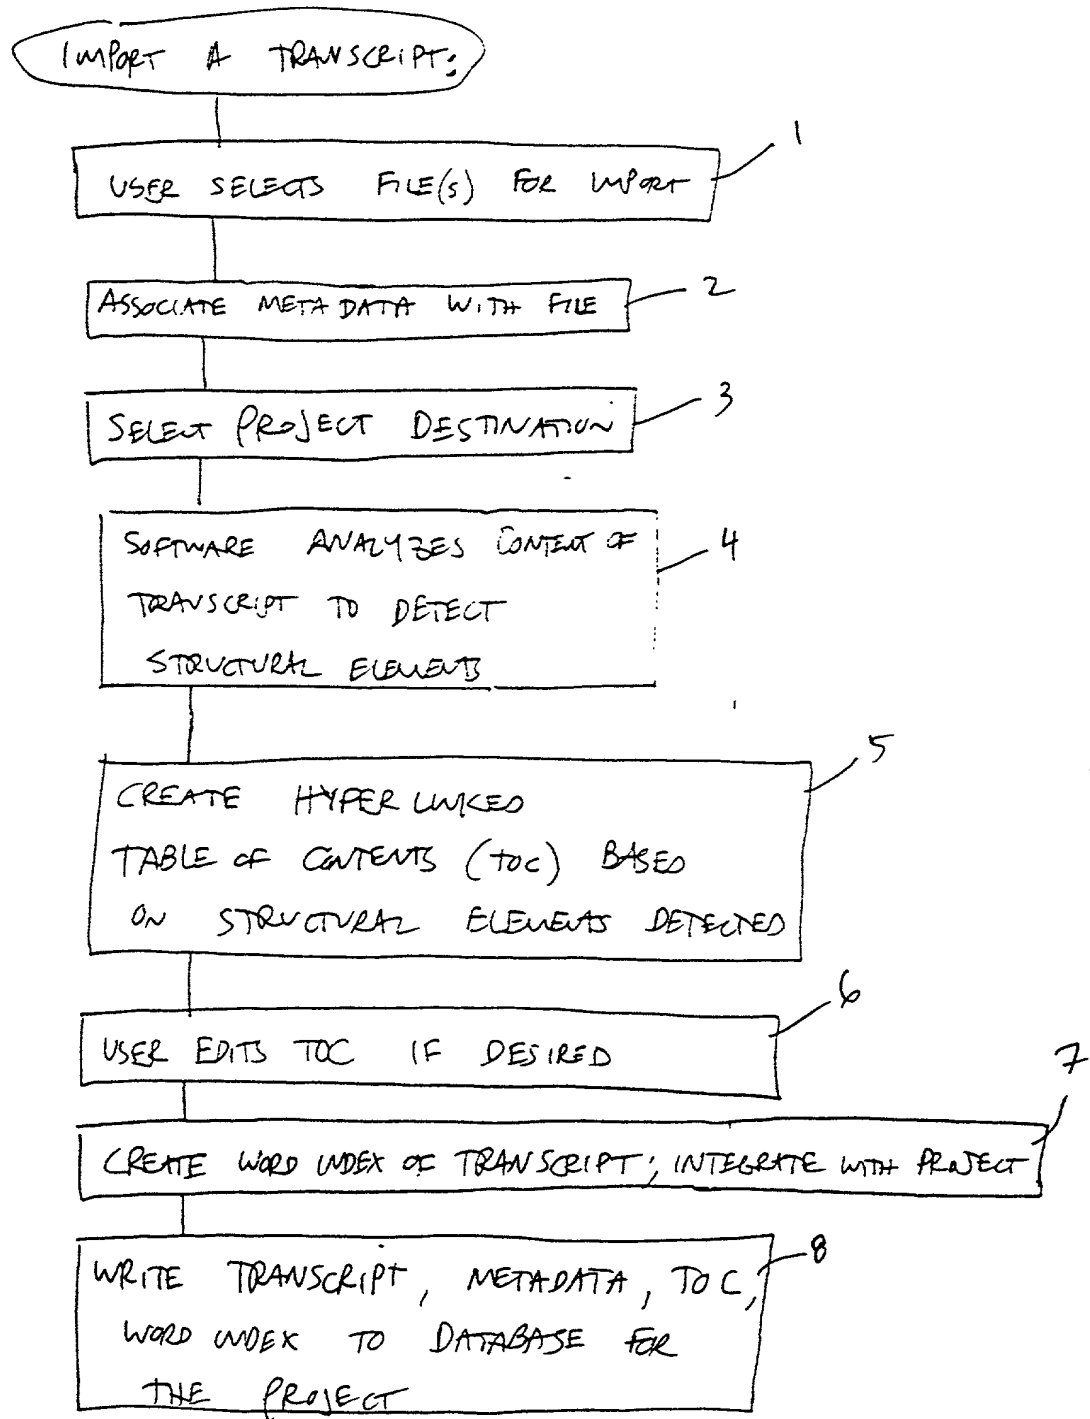 IMPORT A TRANSCRIPT:
1
USER SELECTS FILE(S) FOR IMPORT
2
ASSOCIATE METADATA WITH FILE
3
SELECT PROJECT DESTINATION
4
SOFTWARE ANALYZES CONTENT OF
TRANSCRIPT TO DETECT
STRUCTURAL ELEMENTS
5
CREATE HYPERLINKED
TABLE OF CONTENTS (TOC) BASED
ON STRUCTURAL ELEMENTS DETECTED
6
USER EDITS TOC IF DESIRED
7
CREATE WORD INDEX OF TRANSCRIPT; INTEGRATE WITH PROJECT
8
WRITE TRANSCRIPT, METADATA, TOC,
WORD INDEX TO DATABASE FOR
THE PROJECT